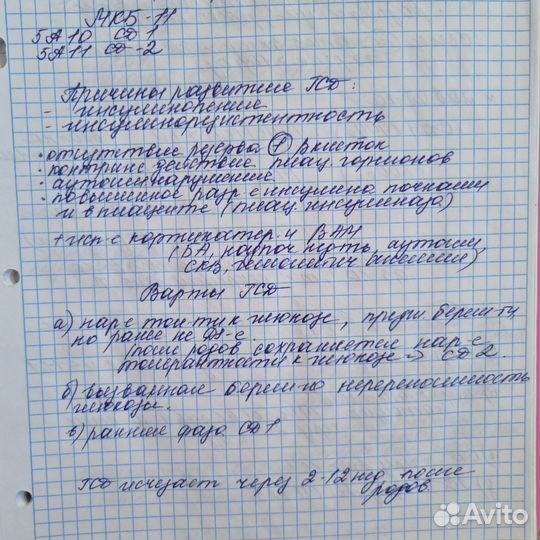 МКБ-11
5А10 СД 1
5А11 СД-2
Причины развития ГСД:
- инсулинопения
- инсулинорезистентность
• отсутствие резерва β клеток
• контринс действие плац гормонов
• аутоиммунарушение
• повышенное разр-е инсулина почками
и в плаценте (плац. инсулиназа)
+ исп-е кортикостер. и
(БА, надпоч недть, аутоимм,
СКВ,
Варты ГСД
а) нар-е тол-ти к глюкозе, предш. берем-ти,
но ранее не DS-е
(после родов сохраняется нар-е
толерантности к глюкозе → СД 2.
б) вызванная берем-ю непереносимость
глюкозы.
в) ранняя фаза СД1
ГСД исчезает через 2-12 нед после
родов
Avito